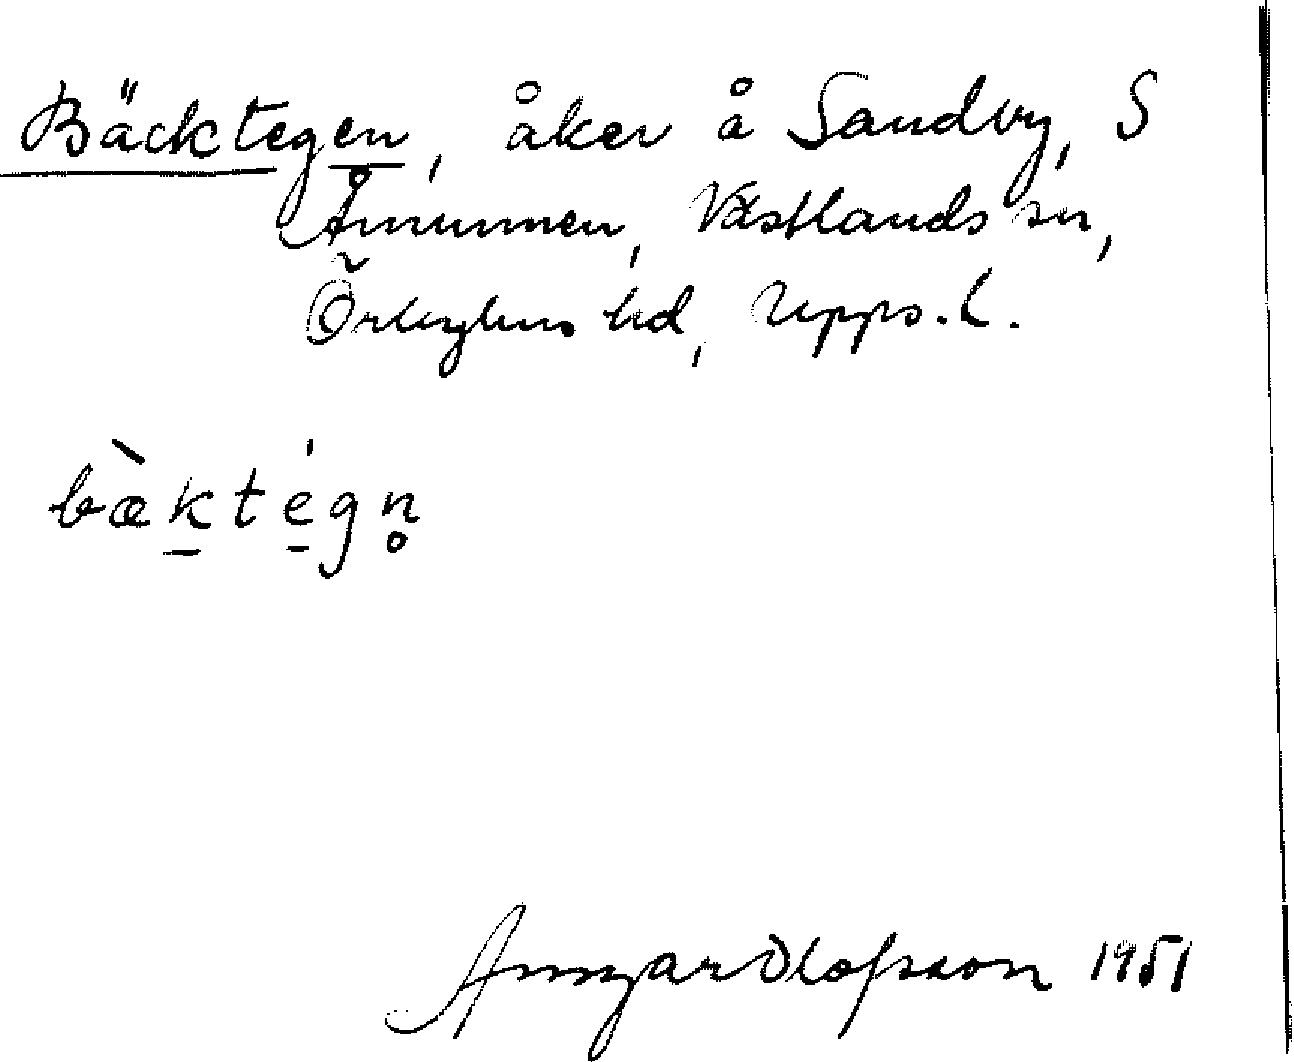 Bäcktegen, åker å Sandby, S
Åmunnen, Västlands sn,
Örbyhus hd, Upps. L.
bæ̀ktégn̥
Ansgar Olofsson 1951